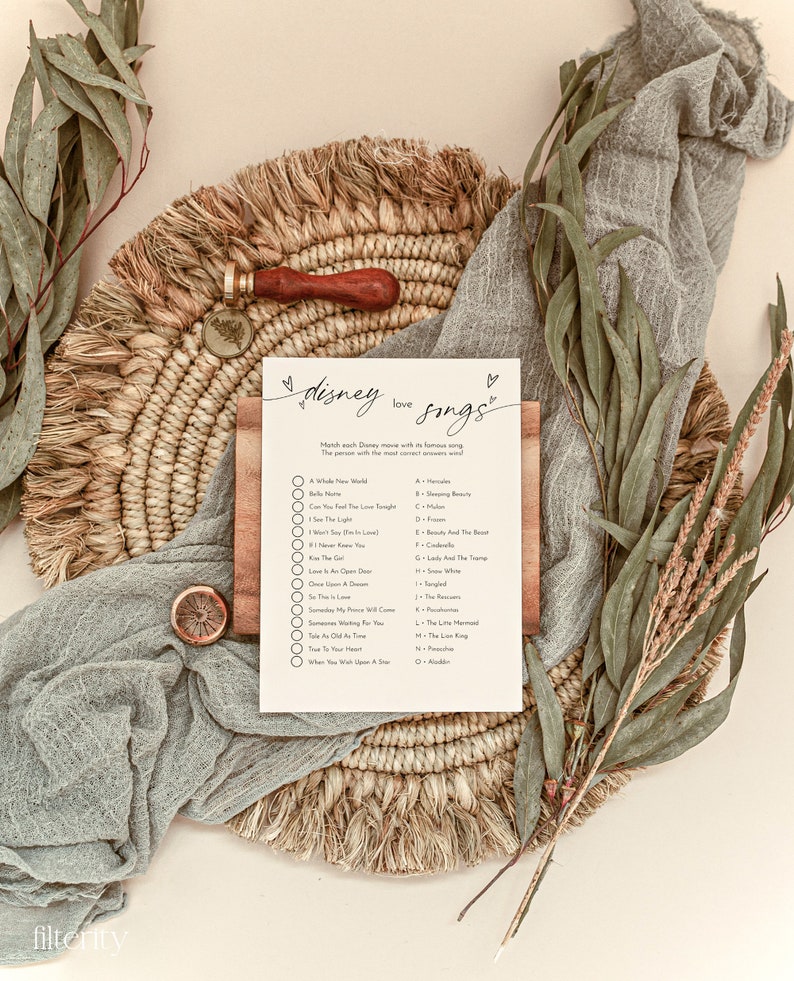 disney love songs
Match each Disney movie with its famous song.
The person with the most correct answers wins!
A Whole New World
Bella Notte
Can You Feel The Love Tonight
I See The Light
I Won't Say (I'm In Love)
If I Never Knew You
Kiss The Girl
Love Is An Open Door
Once Upon A Dream
So This Is Love
Someday My Prince Will Come
Someones Waiting For You
Tale As Old As Time
True To Your Heart
When You Wish Upon A Star
A • Hercules
B • Sleeping Beauty
C • Mulan
D • Frozen
E • Beauty And The Beast
F • Cinderella
G • Lady And The Tramp
H • Snow White
I • Tangled
J • The Rescuers
K • Pocahontas
L • The Little Mermaid
M • The Lion King
N • Pinocchio
O • Aladdin
filterity